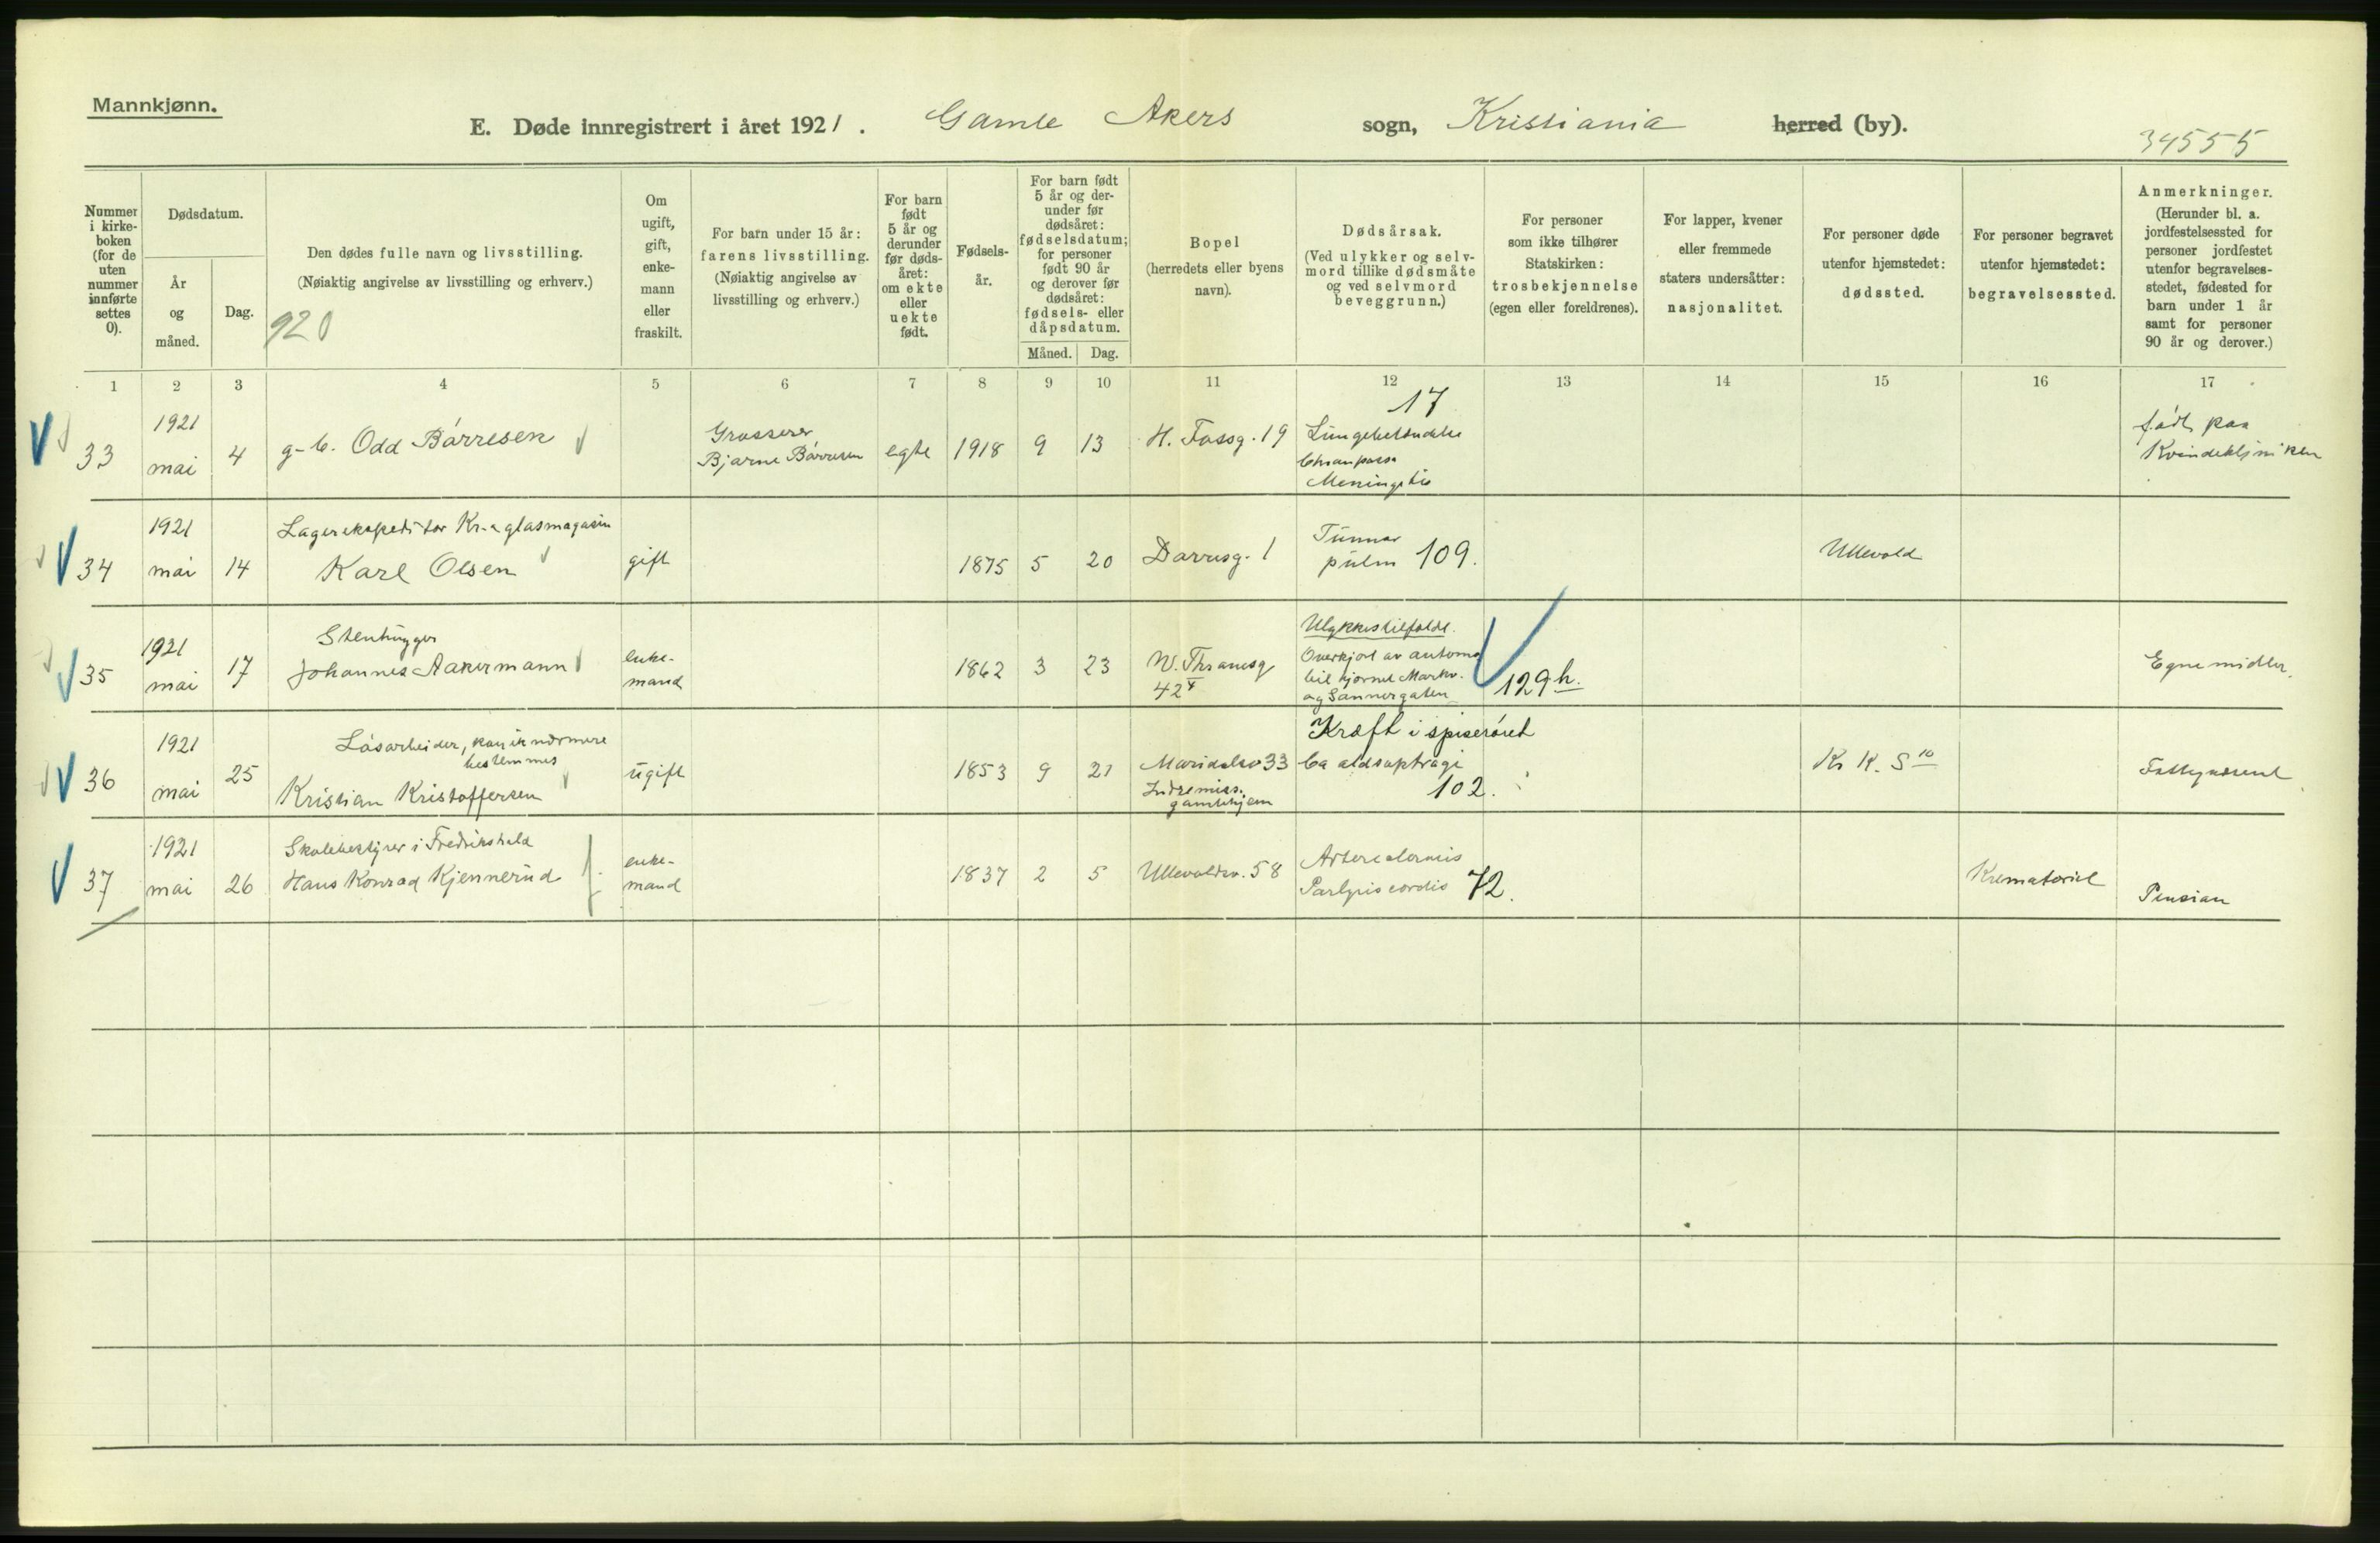 Mannkjønn.
E. Døde innregistrert i året 1921. Gamle Akers sogn, Kristiania herred (by).
34555
Nummer i kirke-boken (for de uten nummer innførte settes 0).
Dødsdatum.
År og måned.
Dag.
Den dødes fulle navn og livsstilling.
(Nøiaktig angivelse av livsstilling og erhverv.)
920
Om ugift, gift, enke-mann eller fraskilt.
For barn under 15 år: farens livsstilling. (Nøiaktig angivelse av livsstilling og erhverv.)
For barn født 5 år og derunder før døds-året: om ekte eller uekte født.
Fødsels-år.
For barn født 5 år og der-under før dødsåret: fødselsdatum; for personer født 90 år og derover før dødsåret: fødsels- eller dåpsdatum.
Måned. Dag.
Bopel (herredets eller byens navn).
Dødsårsak. (Ved ulykker og selv-mord tillike dødsmåte og ved selvmord beveggrunn.)
For personer som ikke tilhører Statskirken: trosbekjennelse (egen eller foreldrenes).
For lapper, kvener eller fremmede staters undersåtter: nasjonalitet.
For personer døde utenfor hjemstedet: dødssted.
For personer begravet utenfor hjemstedet: begravelsessted.
Anmerkninger. (Herunder bl. a. jordfestelsessted for personer jordfestet utenfor begravelses-stedet, fødested for barn under 1 år samt for personer 90 år og derover.)
1 2 3 4 5 6 7 8 9 10 11 12 13 14 15 16 17
33 1921 mai 4 g-b. Odd Børresen
Grosserer
Bjarne Børresen
egte 1918 9 13 H. Fossg. 19
17
Lungebetændelse
Meningitis
født paa
Kvindeklinikken
34 1921 mai 14 Lagerekspeditør Kr.a glasmagasin
Karl Olsen
gift 1875 5 20 Darresg. 1
Tumor
pulm 109.
Ullevold
35 1921 mai 17 Stenhugger
Johannes Aakermann
enke-
mand
1862 3 23 W. Thranesg
42 V
Ulykkestilfælde.
Overkjørt av automo
bil hjørnet Markv.
og Sannergaten
129 h.
Egne midler.
36 1921 mai 25 Løsarbeider, kan ik nærmere
bestemmes
Kristian Kristoffersen
ugift 1853 9 21 Maridalsv 33
Indremiss.
gamlehjem
Kræft i spiserøret
Ca øsophagi
102.
Kr K. S 10
Fattigunderst
37 1921 mai 26 Skolebestyrer i Fredrikshald
Hans Konrad Kjennerud
enke-
mand
1837 2 5 Ullevoldsv. 58
Paralysis cordis 72.
Krematoriet
Pension